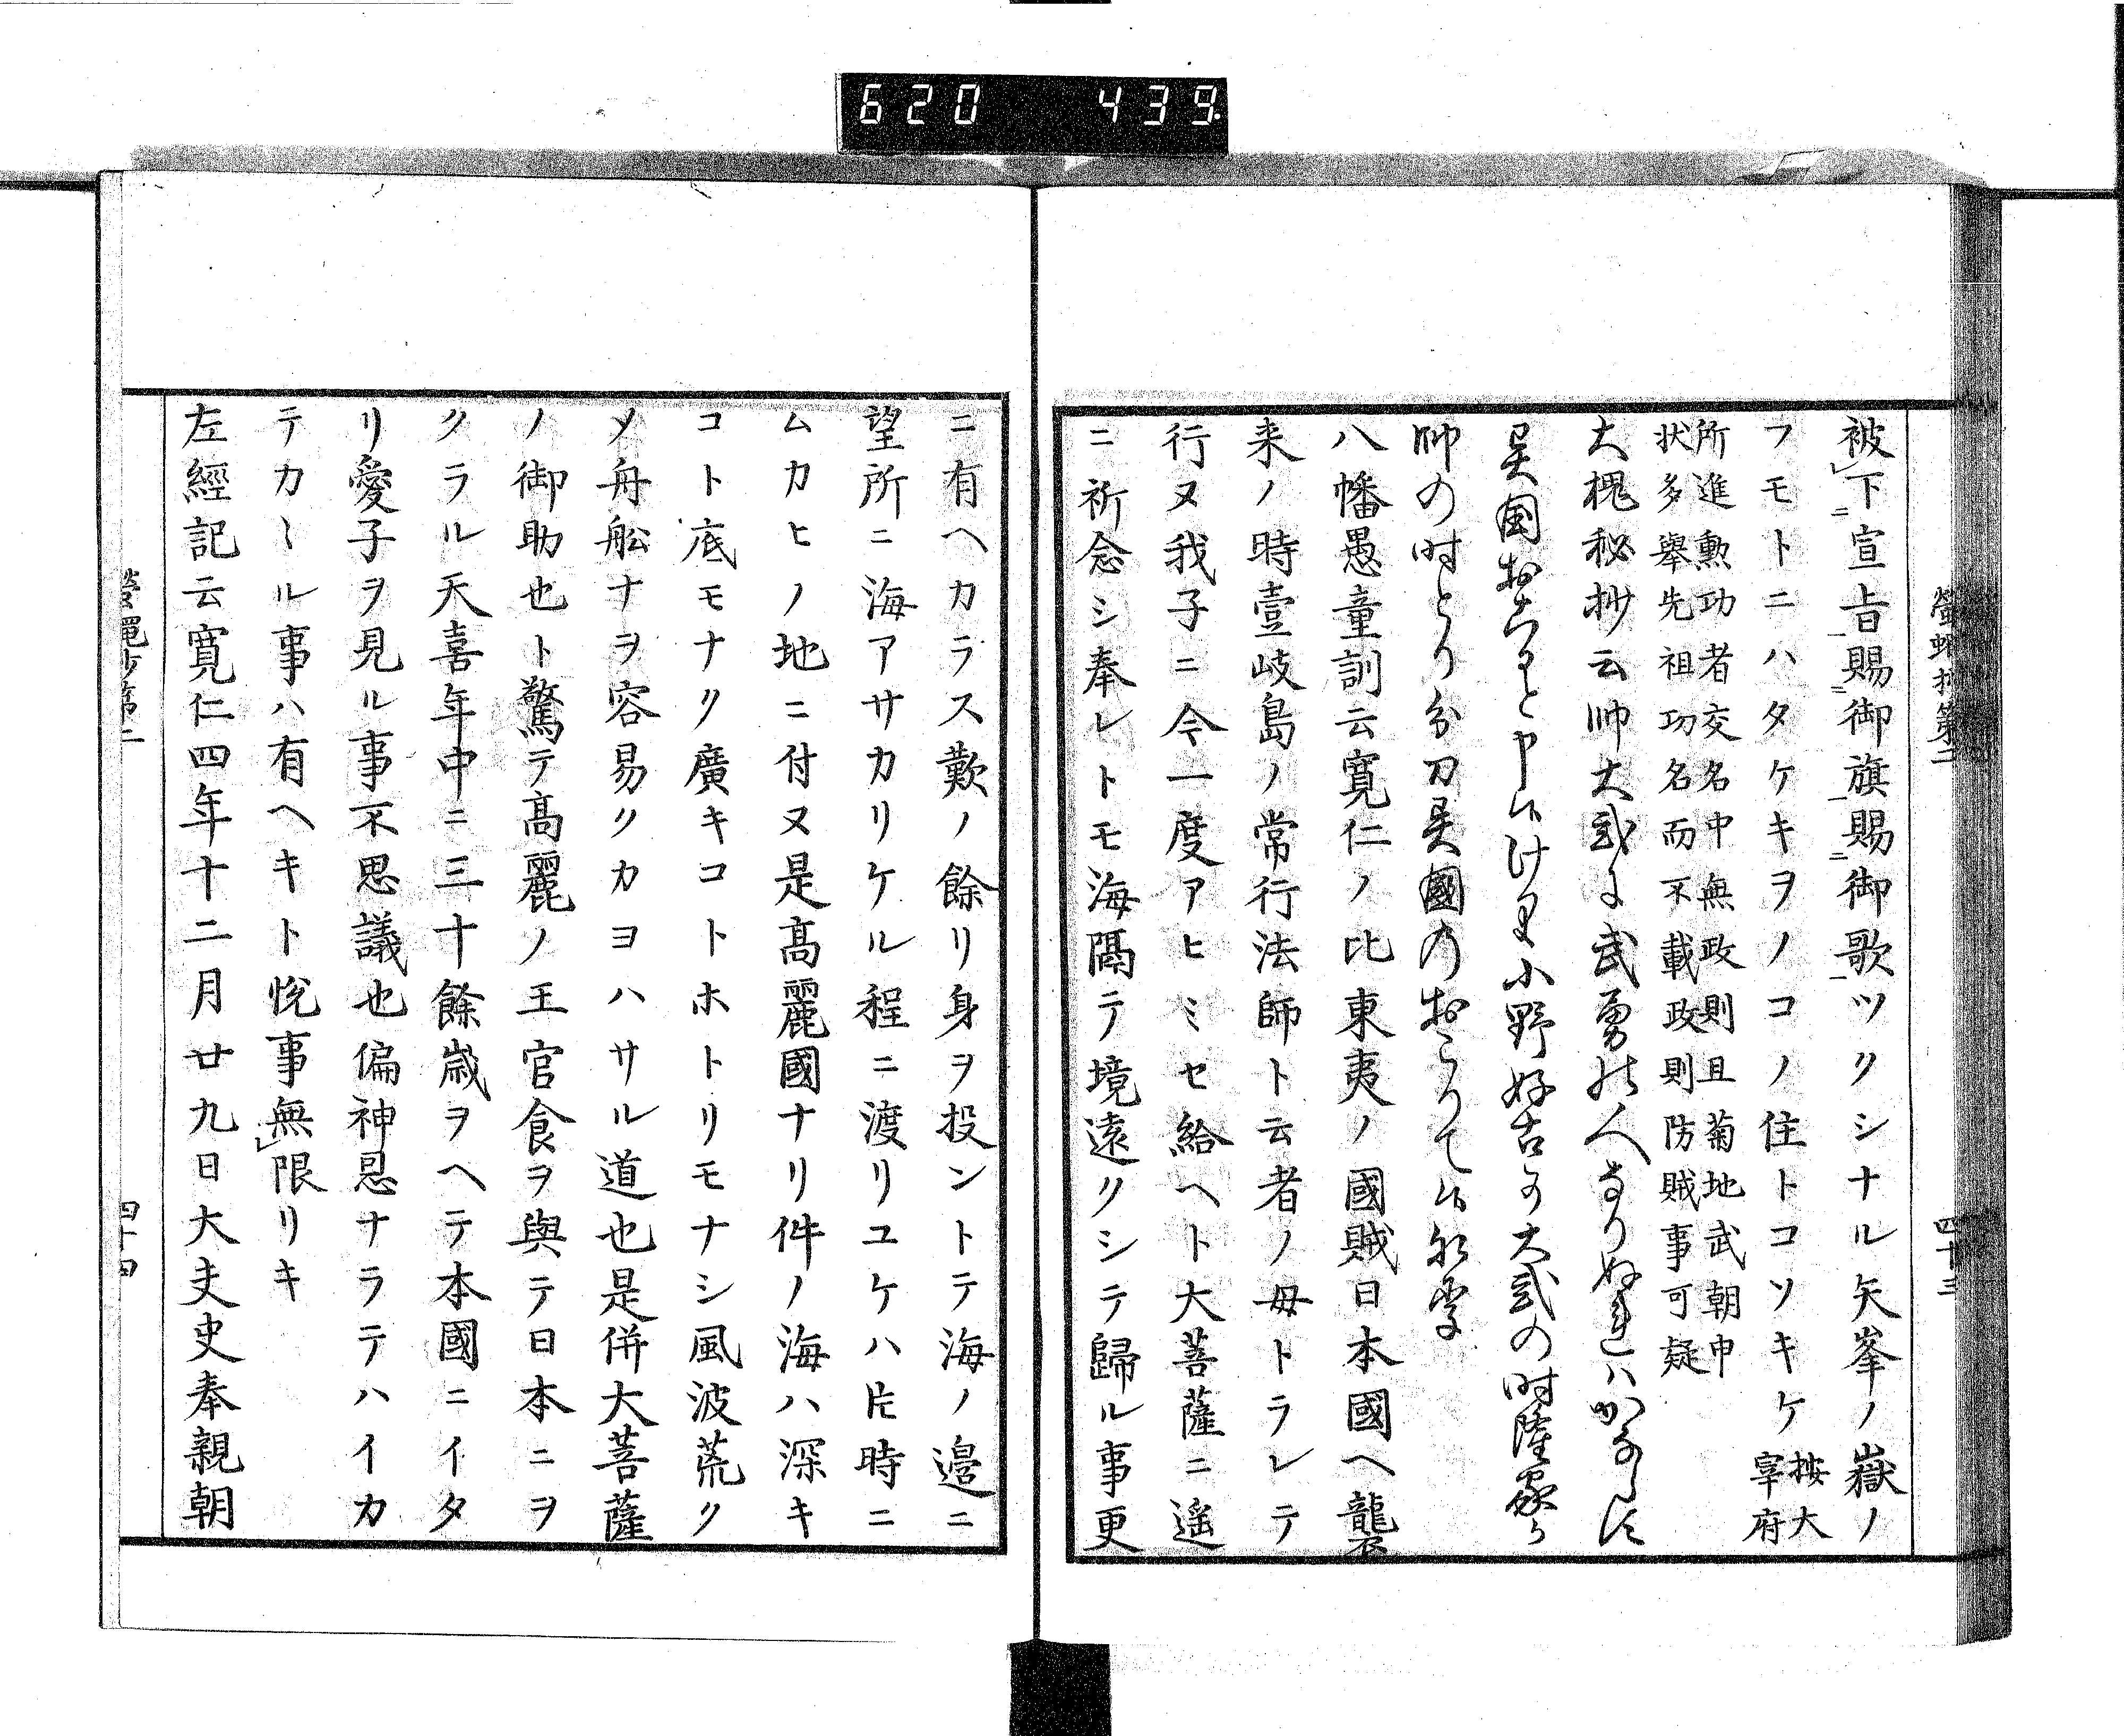 620 439
螢蠅抄第二 四十三
被下宣旨賜御旗賜御歌ツクシナル矢峯ノ嶽ノ
フモトニハタケキヲノコノ住トコソキケ按大宰府
所進勲功者交名中無政則且菊地武朝申
状多擧先祖功名而不載政則防賊事可疑
大槐秘抄云帥大貳に武勇の人なりぬれハかならす
異國おこると申候けり小野好古か大貳の時隆家か
帥の時とりわけ刀異國のおこりて候
八幡愚童訓云寛仁ノ比東夷ノ國賊日本國ヘ襲
来ノ時壹岐島ノ常行法師ト云者ノ母トラレテ
行ヌ我子ニ今一度アヒミセ給ヘト大菩薩ニ遥
ニ祈念シ奉レトモ海隔テ境遠クシテ歸ル事更
ニ有ヘカラス歎ノ餘リ身ヲ投ントテ海ノ邉ニ
望所ニ海アサカリケル程ニ渡リユケハ片時ニ
ムカヒノ地ニ付ヌ是髙麗國ナリ件ノ海ハ深キ
コト底モナク廣キコトホトリモナシ風波荒ク
メ舟舩ナヲ容易クカヨハサル道也是併大菩薩
ノ御助也ト驚テ髙麗ノ王官食ヲ與テ日本ニヲ
クラル天喜年中ニ三十餘歳ヲヘテ本國ニイタ
リ愛子ヲ見ル事不思議也偏神恩ナラテハイカ
テカヽル事ハ有ヘキト悦事無限リキ
左經記云寛仁四年十二月廿九日大夫史奉親朝
螢蠅抄第二 四十四